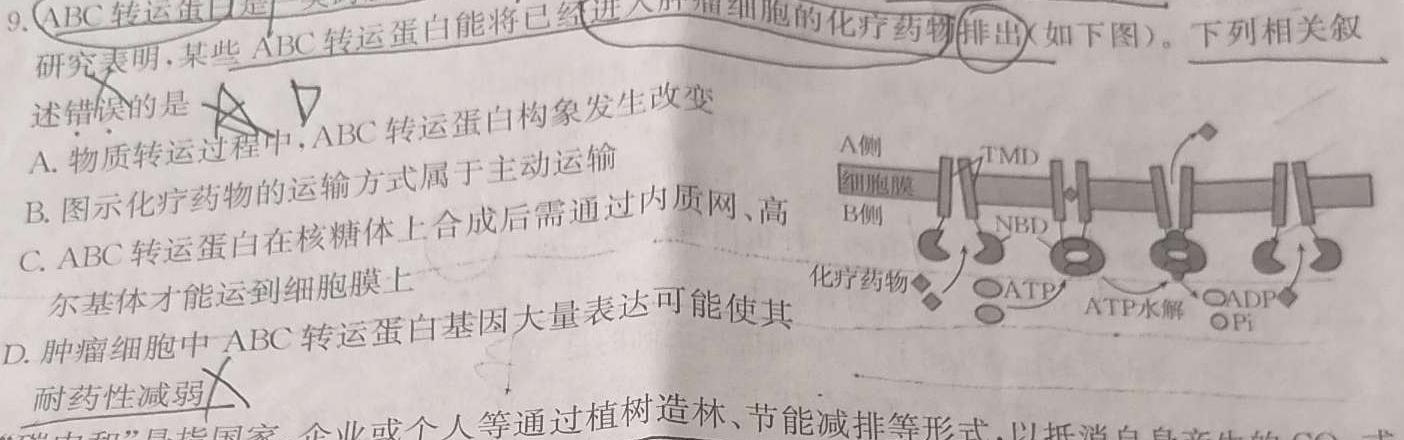 9. ABC 转运蛋白是
研究表明,某些 ABC 转运蛋白能将已经进入肿瘤细胞的化疗药物排出(如下图)。下列相关叙
述错误的是
A. 物质转运过程中,ABC 转运蛋白构象发生改变
B. 图示化疗药物的运输方式属于主动运输
C. ABC 转运蛋白在核糖体上合成后需通过内质网、高
尔基体才能运到细胞膜上
D. 肿瘤细胞中 ABC 转运蛋白基因大量表达可能使其
耐药性减弱
A侧
TMD
细胞膜
B侧
NBD
化疗药物
ATP
ATP水解
ADP
Pi
"碳中和"是指国家、企业或个人等通过植树造林、节能减排等形式,以抵消自身产生的 CO